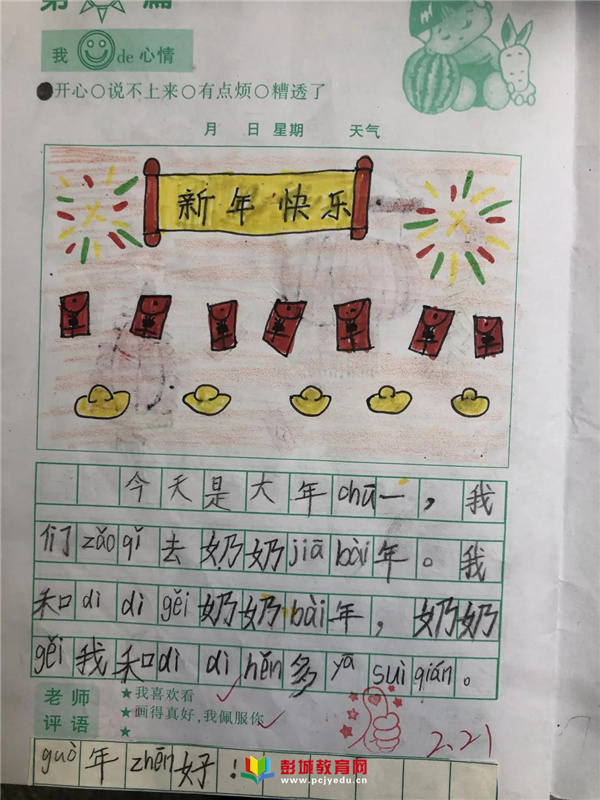 第 篇
我 de心情
开心○说不上来○有点烦○糟透了
月 日 星期 天气
新年快乐
今天是大年chū一，我
们zǎo qǐ去奶奶jiā bài年。我
和dì dì gěi奶奶bài年，奶奶
gěi我和dì dì hěn多yā suì qián。
老师
评语
★我喜欢看
★画得真好，我佩服你
2.21
guò年zhēn好！
彭城教育网
www.pcjyedu.cn